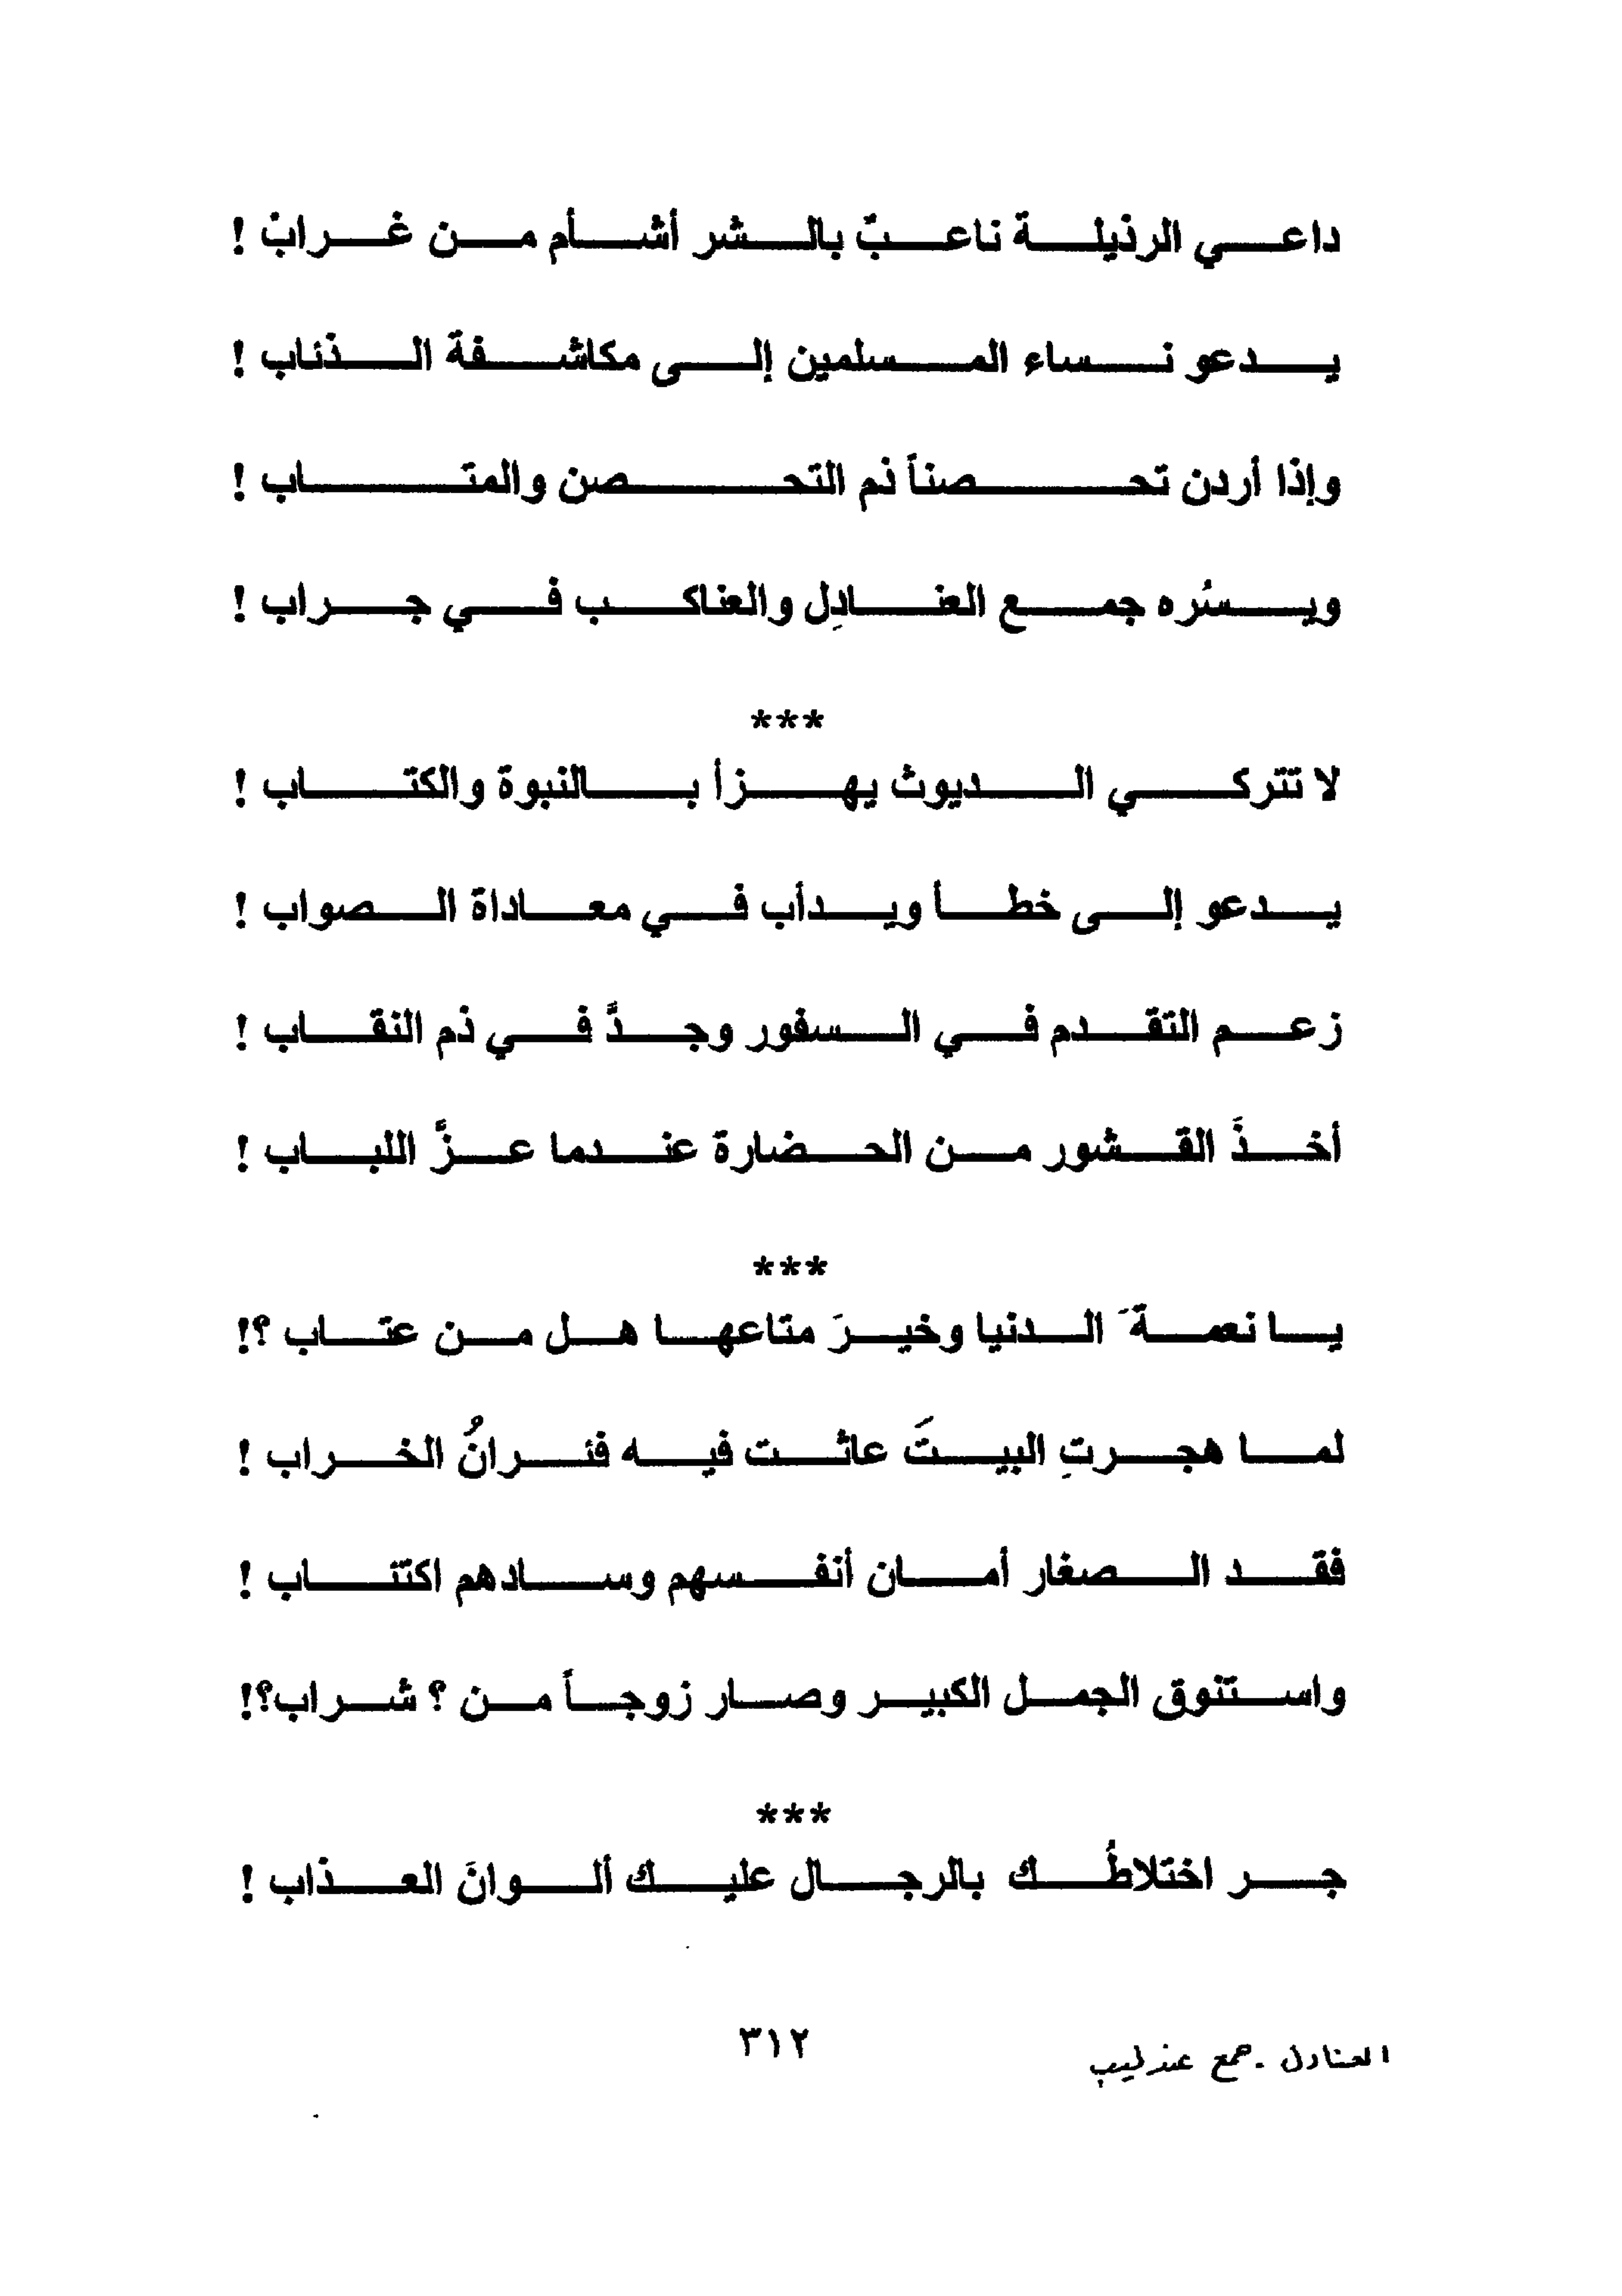 داعي الرذيلة ناعبٌ بالشر أشأم من غرابْ !
يدعو نساء المسلمين إلى مكاشفة الذئاب !
وإذا أردن تحصناً ذم التحصن والمتاب !
ويسُره جمع العنادِل والعناكب في جراب !
***
لا تتركي الديوث يهزأ بالنبوة والكتاب !
يدعو إلى خطأ ويدأب في معاداة الصواب !
زعم التقدم في السفور وجدَّ في ذم النقاب !
أخذَ القشور من الحضارة عندما عزَّ اللباب !
***
يا نعمةَ الدنيا وخيرَ متاعها هل من عتاب ؟!
لما هجرتِ البيتَ عاثت فيه فئرانُ الخراب !
فقد الصغار أمان أنفسهم وسادهم اكتئاب !
واستنوق الجمل الكبير وصار زوجاً من ؟ شراب؟!
***
جر اختلاطُك بالرجال عليك ألوانَ العذاب !
العنادل - جمع عندليب
٣١٢